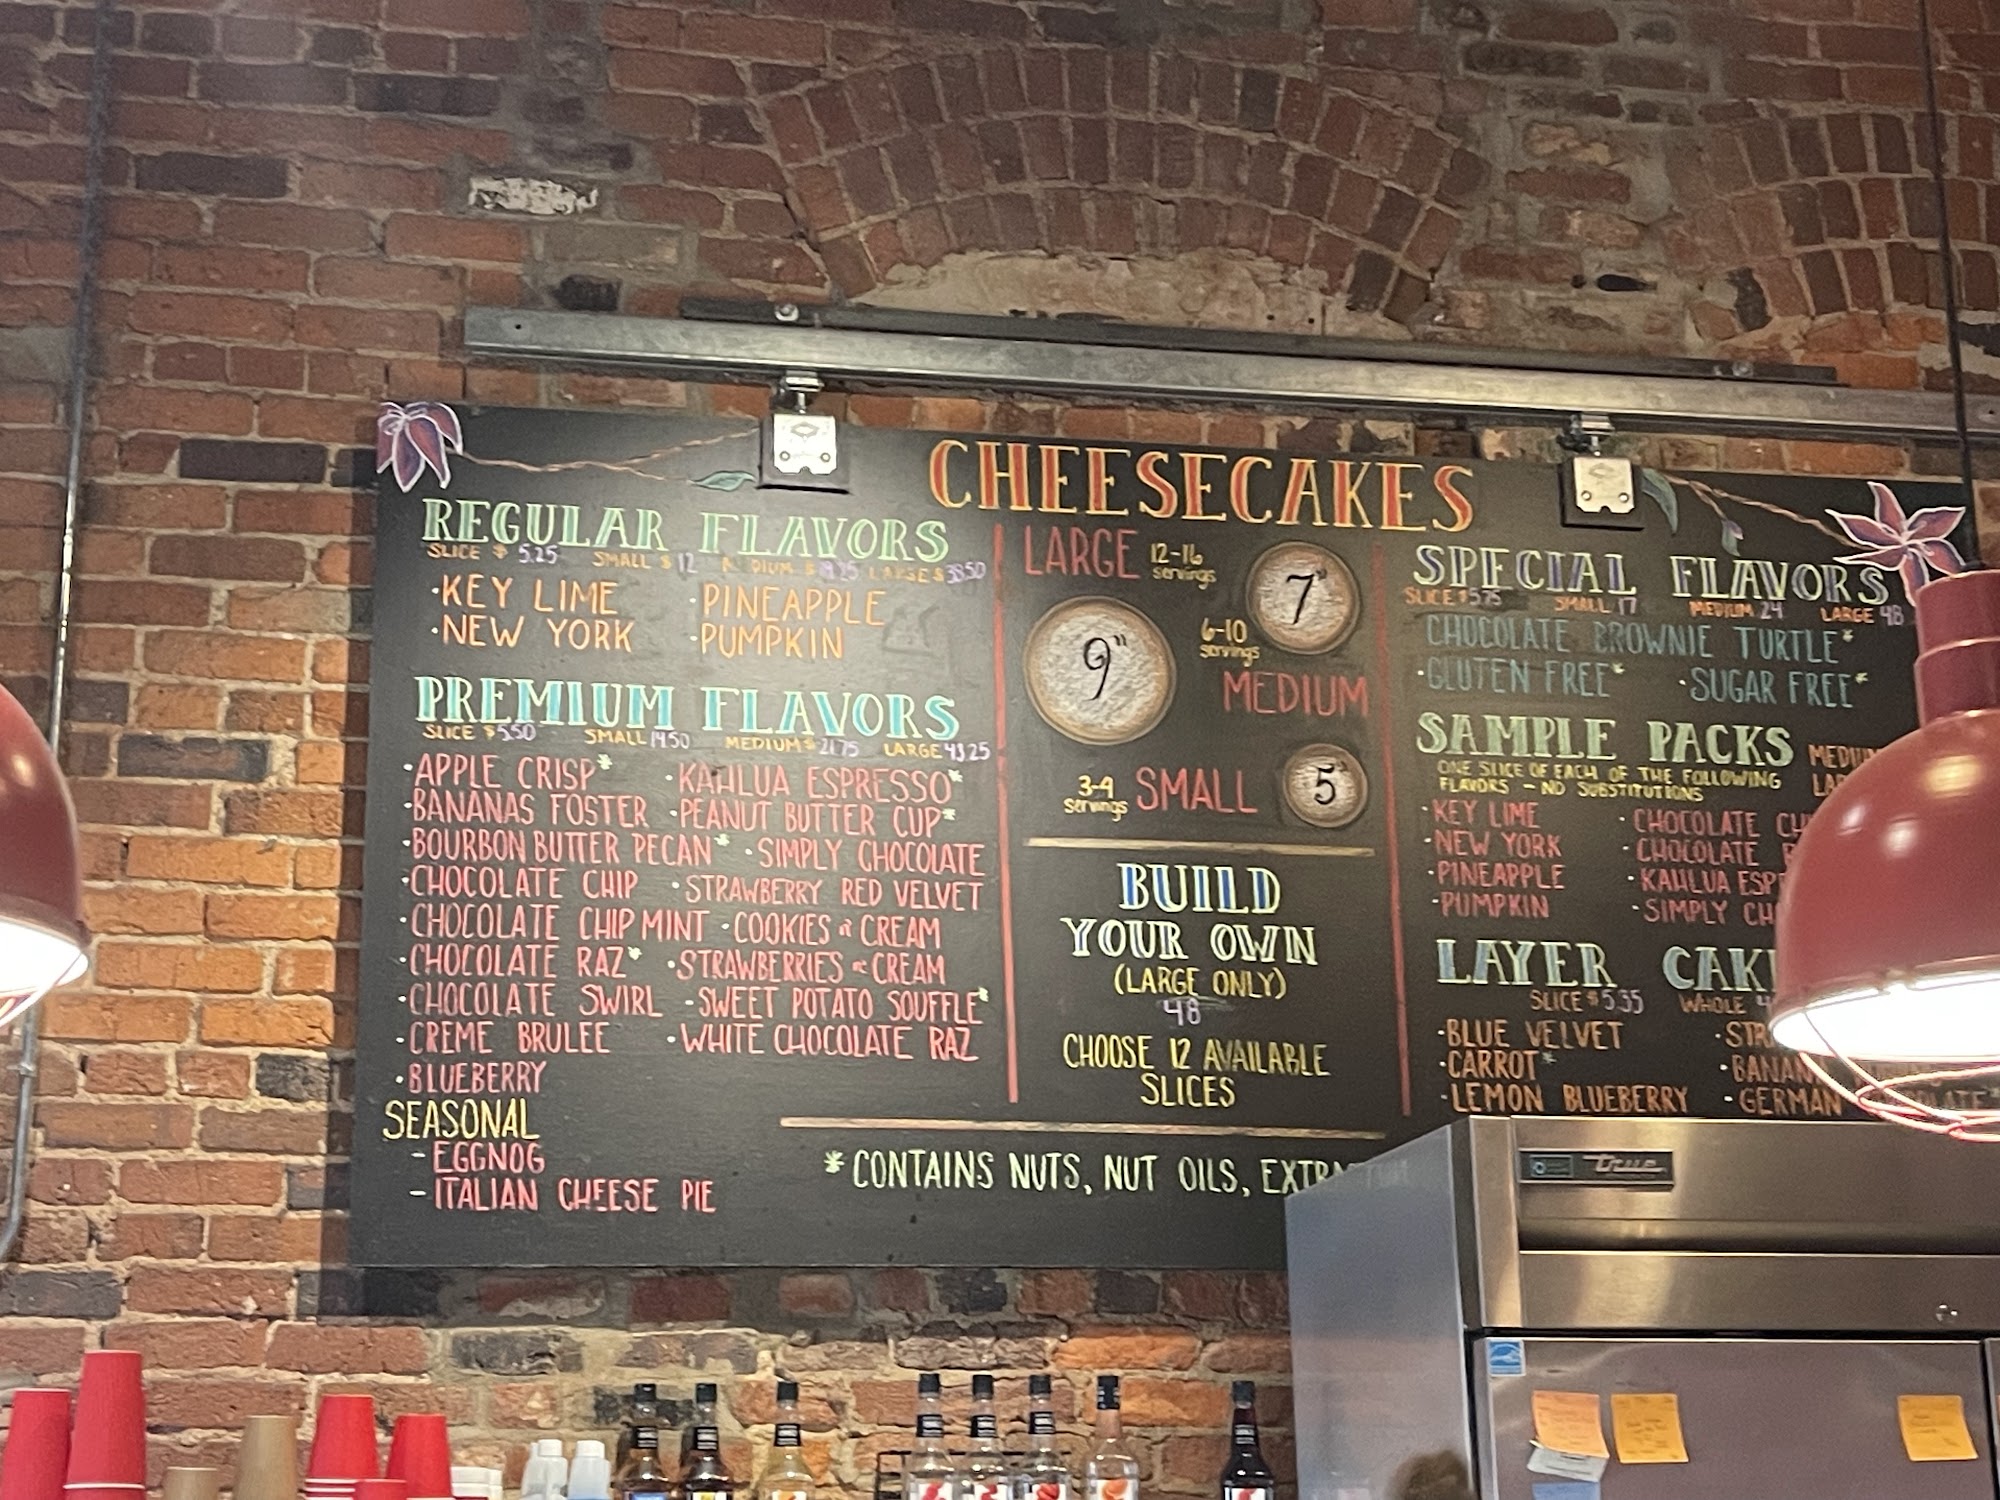 CHEESECAKES
REGULAR FLAVORS
SLICE $ 5.25 SMALL $ 12 LARGE $ 38.50
·KEY LIME ·PINEAPPLE
·NEW YORK ·PUMPKIN
PREMIUM FLAVORS
SLICE $5.50 SMALL 14.50 MEDIUM $ 21.75 LARGE 43.25
·APPLE CRISP* ·KAHLUA ESPRESSO*
·BANANAS FOSTER ·PEANUT BUTTER CUP*
·BOURBON BUTTER PECAN* ·SIMPLY CHOCOLATE
·CHOCOLATE CHIP ·STRAWBERRY RED VELVET
·CHOCOLATE CHIP MINT ·COOKIES & CREAM
·CHOCOLATE RAZ* ·STRAWBERRIES & CREAM
·CHOCOLATE SWIRL ·SWEET POTATO SOUFFLE*
·CREME BRULEE ·WHITE CHOCOLATE RAZ
·BLUEBERRY
SEASONAL
- EGGNOG
- ITALIAN CHEESE PIE
LARGE 12-16
servings
7"
9"
6-10
servings
MEDIUM
3-4
servings
SMALL 5"
BUILD
YOUR OWN
(LARGE ONLY)
48
CHOOSE 12 AVAILABLE
SLICES
SPECIAL FLAVORS
SLICE $5.75 SMALL 17 MEDIUM 24 LARGE 48
CHOCOLATE BROWNIE TURTLE*
·GLUTEN FREE* ·SUGAR FREE*
SAMPLE PACKS
ONE SLICE OF EACH OF THE FOLLOWING
FLAVORS - NO SUBSTITUTIONS
·KEY LIME ·CHOCOLATE
·NEW YORK ·CHOCOLATE
·PINEAPPLE ·KAHLUA
·PUMPKIN ·SIMPLY
LAYER
SLICE $5.35 WHOLE
·BLUE VELVET
·CARROT*
·LEMON BLUEBERRY ·GERMAN
*CONTAINS NUTS, NUT OILS,
True